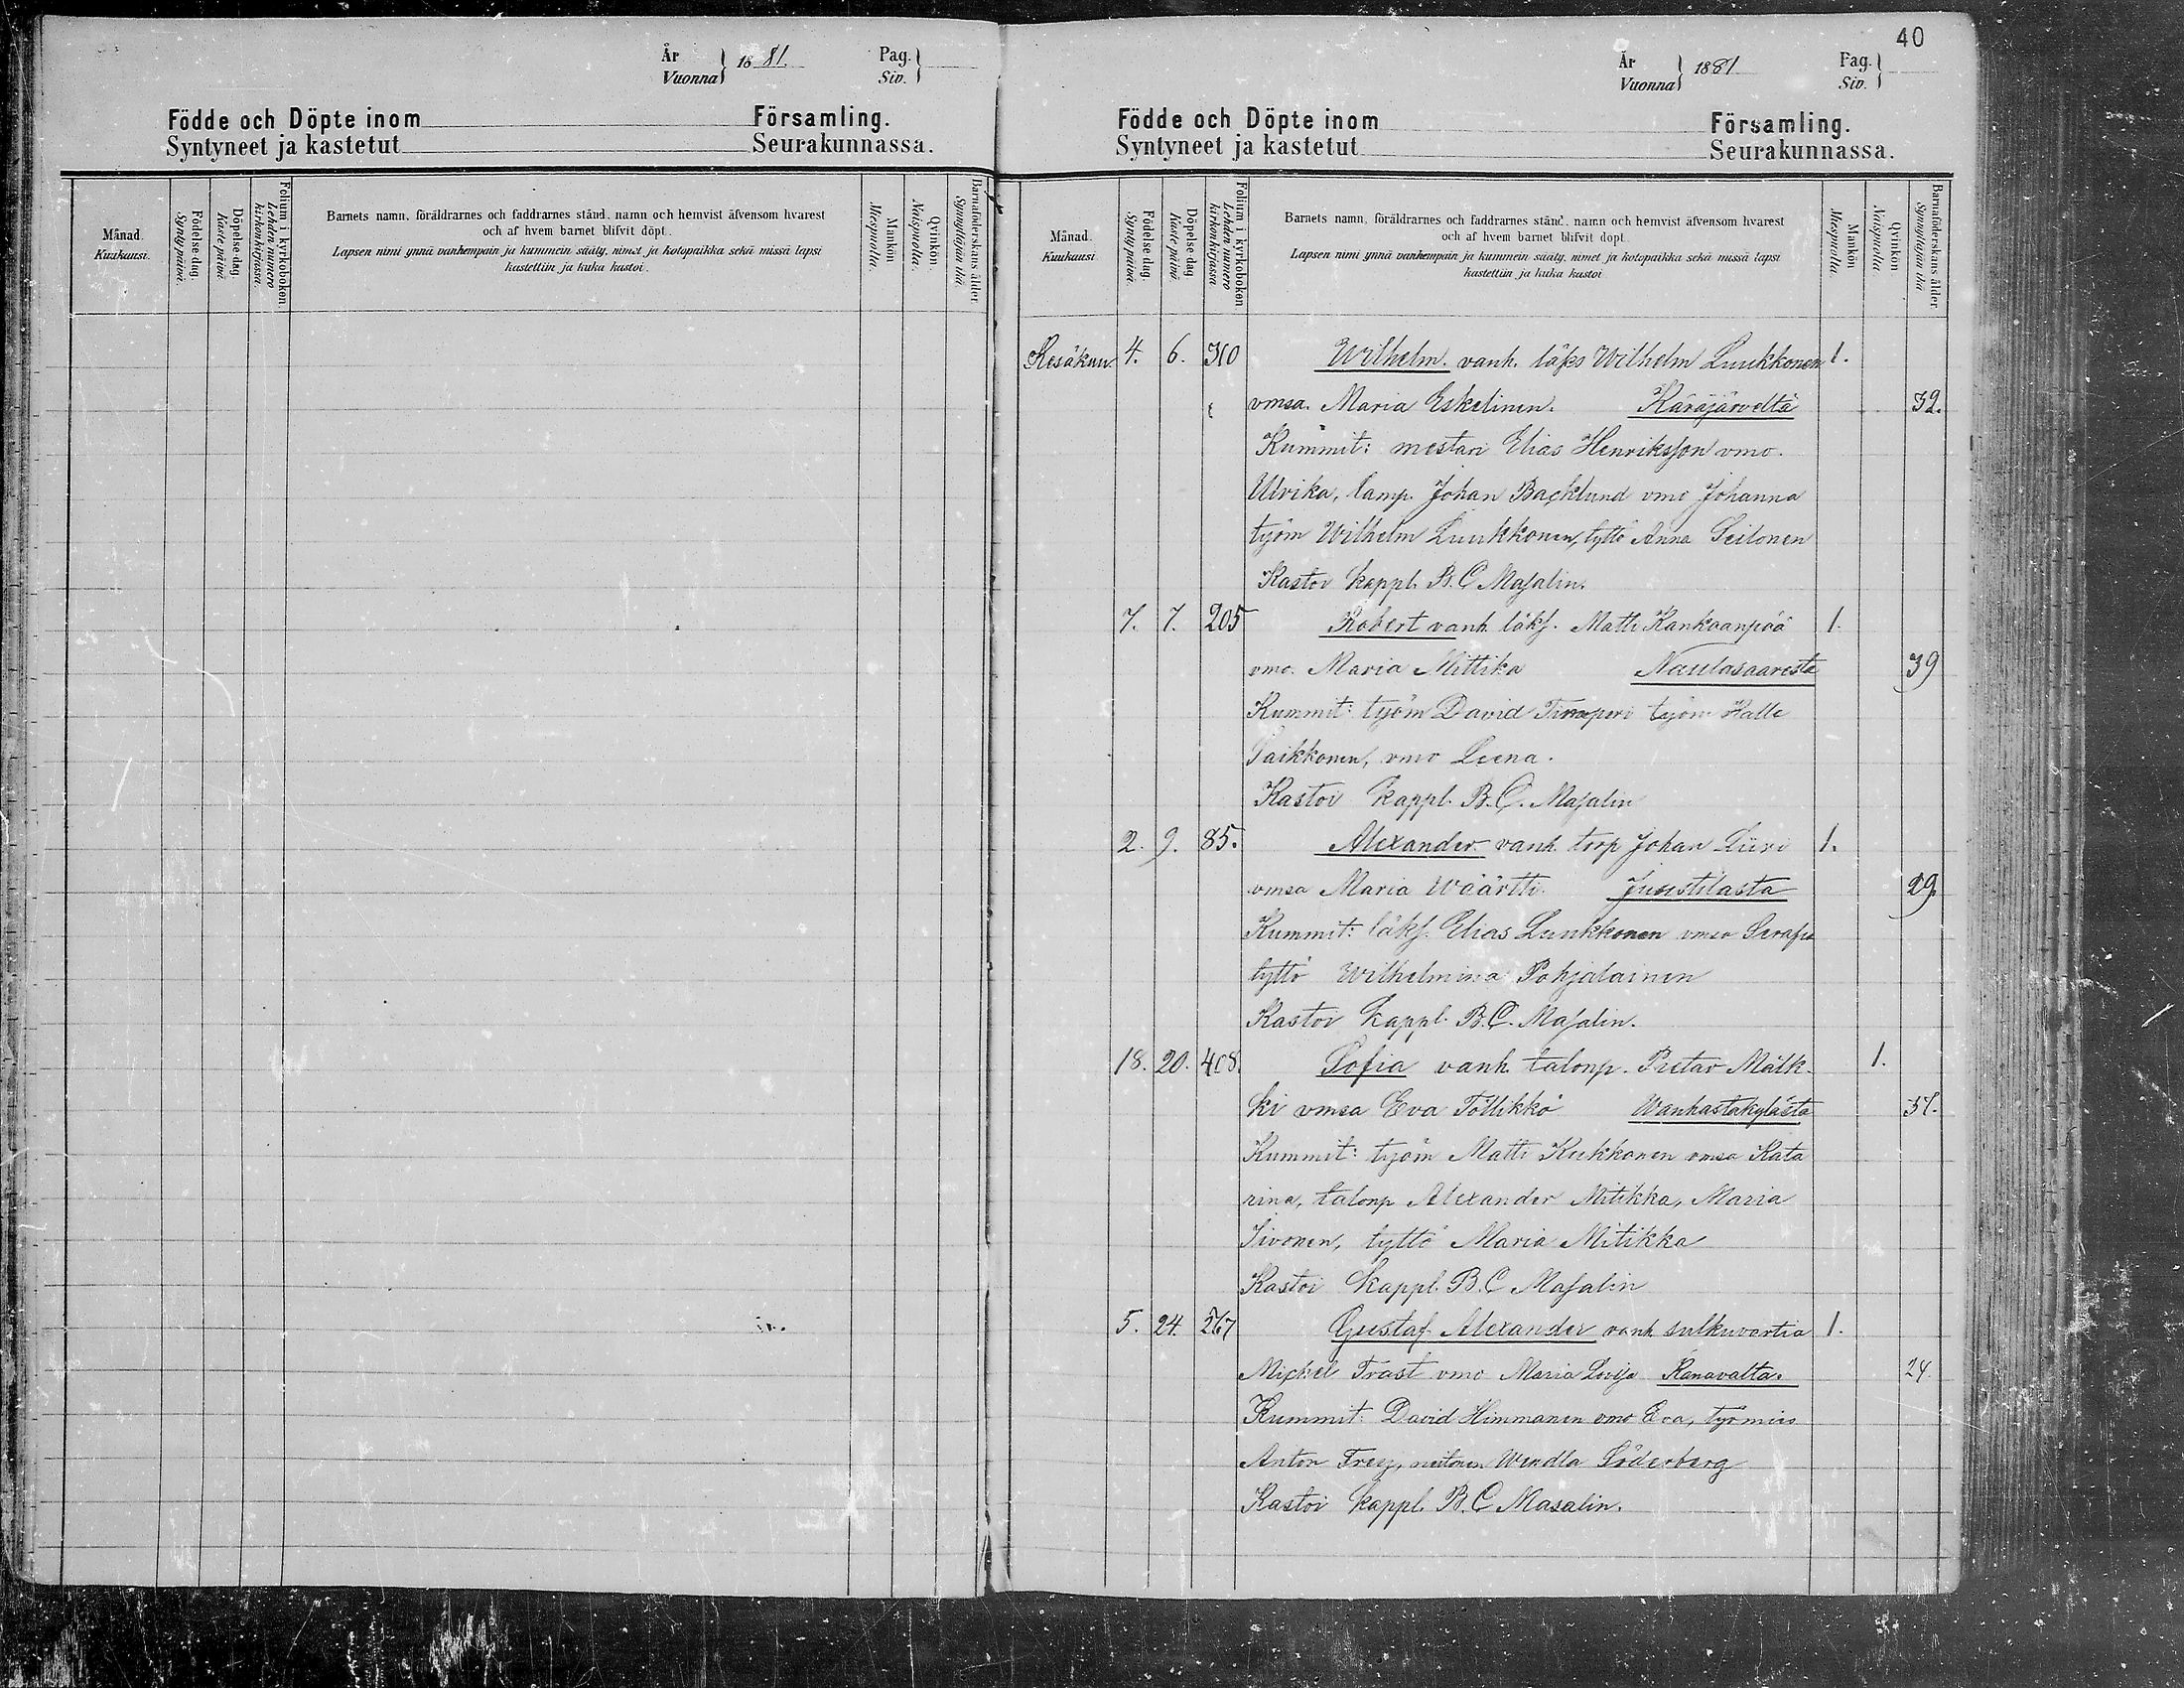 År
Vuonna
1881.
Pag.
Siv.
Födde och Döpte inom Församling.
Syntyneet ja kastetut Seurakunnassa.
Månad.
Kuukausi.
Födelse dag.
Syntypäivä.
Döpelse dag.
Kaste päivä.
Folium i kyrkoboken
Lehden numero
kirkonkirjassa.
Barnets namn, föräldrarnes och faddrarnes stånd, namn och hemvist äfvensom hvarest
och af hvem barnet blifvit döpt.
Lapsen nimi ynnä vanhempain ja kummein sääty, nimet ja kotopaikka sekä missä lapsi
kastettiin ja kuka kastoi.
Mankön
Miespuolta.
Qvinkön.
Naispuolta.
Barnaföderskans ålder
Synnyttäjän ikä
40
År
Vuonna
1881
Pag.
Siv.
Födde och Döpte inom Församling.
Syntyneet ja kastetut Seurakunnassa.
Månad.
Kuukausi
Födelse dag.
Syntypäivä.
Döpelse dag
Kaste päivä.
Folium i kyrkoboken
Lehden numero
kirkonkirjassa
Barnets namn, föräldrarnes och faddrarnes stånd, namn och hemvist äfvensom hvarest
och af hvem barnet blifvit döpt.
Lapsen nimi ynnä vanhempain ja kummein sääty, nimet ja kotopaikka sekä missä lapsi
kastettiin ja kuka kastoi
Mankön
Miespuolta.
Qvinkön
Naispuolta
Barnaföderskans ålder
Synnyttäjän ikä
Kesäkuu 4. 6. 310 Wilhelm. vanh. läks Wilhelm Luukkonen 1.
vmsa. Maria Eskelinen. Käräjärveltä 32.
Kummit: mestari Elias Henriksson vmo.
Ulrika, lamp. Johan Backlund vmo Johanna
työm Wilhelm Luukkonen, tyttö Anna Seilonen
Kastoi kappl. B. C Masalin.
7. 7. 205 Robert vanh läks. Matti Kankaanpää 1.
vmo. Maria Mittika Naulasaaresta 39
Kummit: työm David Timperi työm Kalle
Paikkonen, vmo Leena.
Kastoi kappl. B. C. Masalin
2. 9. 85. Alexander vanh. torp Johan Liiri 1.
vmsa Maria Wäärtti. Juustilasta 29.
Kummit: läks. Elias Luukkonen vmo Serafia
tyttö Wilhelmina Pohjalainen
Kastoi kappl. B. C. Masalin.
18. 20. 408. Sofia vanh. talonp. Pietar Mälk- 1.
ki vmsa Eva Töllikkö Wanhastakylästä 37.
Kummit: työm Matti Kukkonen vmsa Kata
rina, talonp Alexander Mitikka, Maria
Iivonen, tyttö Maria Mitikka
Kastoi kappl. B. C Masalin
5. 24. 267 Gustaf Alexander vanh sulkuvartia 1.
Mickel Trast vmo Maria Lovisa Kanavalta. 24.
Kummit: David Himmanen vmo Eva, työmies
Anton Frey, neitonen Wendla Söderberg
Kastoi kappl. B. C Masalin.